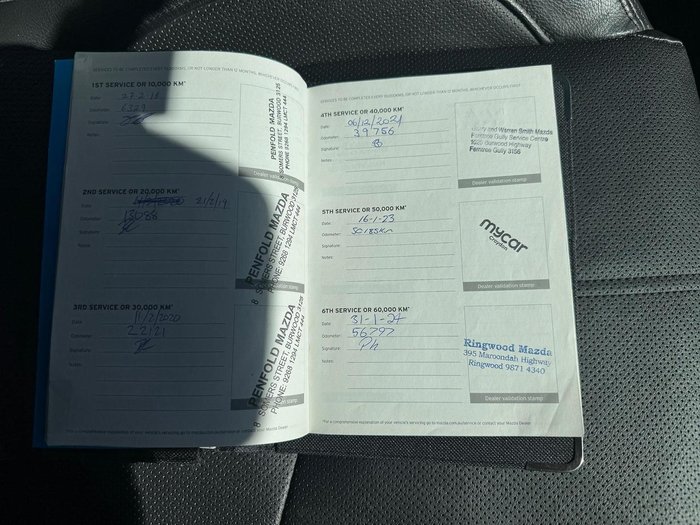 SERVICES TO BE COMPLETED EVERY 10,000KMS, OR NOT LONGER THAN 12 MONTHS, WHICHEVER OCCURS FIRST
1ST SERVICE OR 10,000 KM*
Date:
Odometer: 6329
Signature:
Notes:
PENFOLD MAZDA
SOMERS STREET, BURWOOD 3125
PHONE 9268 1294 LMCT 444
Dealer validation stamp
2ND SERVICE OR 20,000 KM*
Date: 21/2/19
Odometer: 13088
Signature:
Notes:
PENFOLD MAZDA
8 SOMERS STREET, BURWOOD 3125
PHONE: 9268 1294 LMCT 444
stamp
3RD SERVICE OR 30,000 KM*
Date: 11/2/2020
Odometer: 22121
Signature:
Notes:
PENFOLD MAZDA
8 SOMERS STREET, BURWOOD 3125
PHONE: 9268 1294 LMCT 444
stamp
*For a comprehensive explanation of your vehicle's servicing go to mazda.com.au/service or contact your Mazda Dealer
SERVICES TO BE COMPLETED EVERY 10,000KMS, OR NOT LONGER THAN 12 MONTHS, WHICHEVER OCCURS FIRST
4TH SERVICE OR 40,000 KM*
Date: 06/12/2021
Odometer: 39756
Signature:
Notes:
and Warren Smith Mazda
Ferntree Gully Service Centre
Burwood Highway
Ferntree Gully 3156
Dealer validation stamp
5TH SERVICE OR 50,000 KM*
Date: 16-1-23
Odometer: 50185km
Signature:
Notes:
mycar
Croydon
Dealer validation stamp
6TH SERVICE OR 60,000 KM*
Date: 31-1-24
Odometer: 56797
Signature:
Notes:
Ringwood Mazda
395 Maroondah Highway
Ringwood 9871 4340
Dealer validation stamp
*For a comprehensive explanation of your vehicle's servicing go to mazda.com.au/service or contact your Mazda Dealer